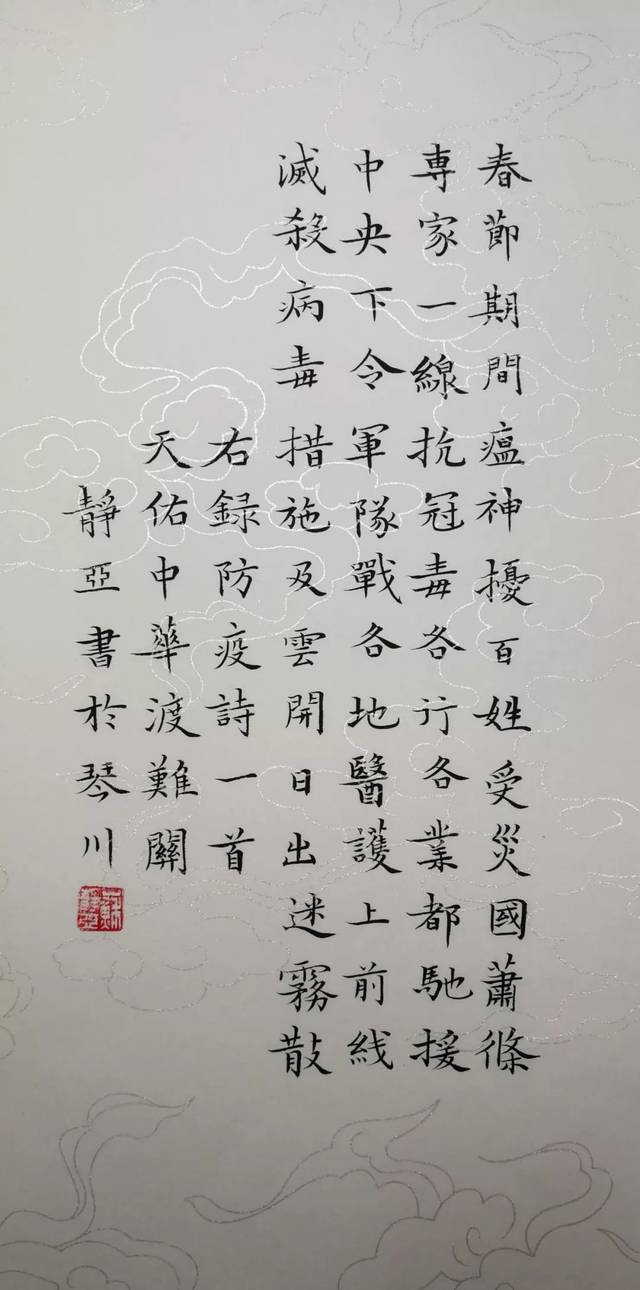 春節期間瘟神擾百姓受災國蕭條
專家一線抗冠毒各行各業都馳援
中央下令軍隊戰各地醫護上前线
滅殺病毒措施及雲開日出迷霧散
右録防疫詩一首
天佑中華渡難關
靜亞書於琴川